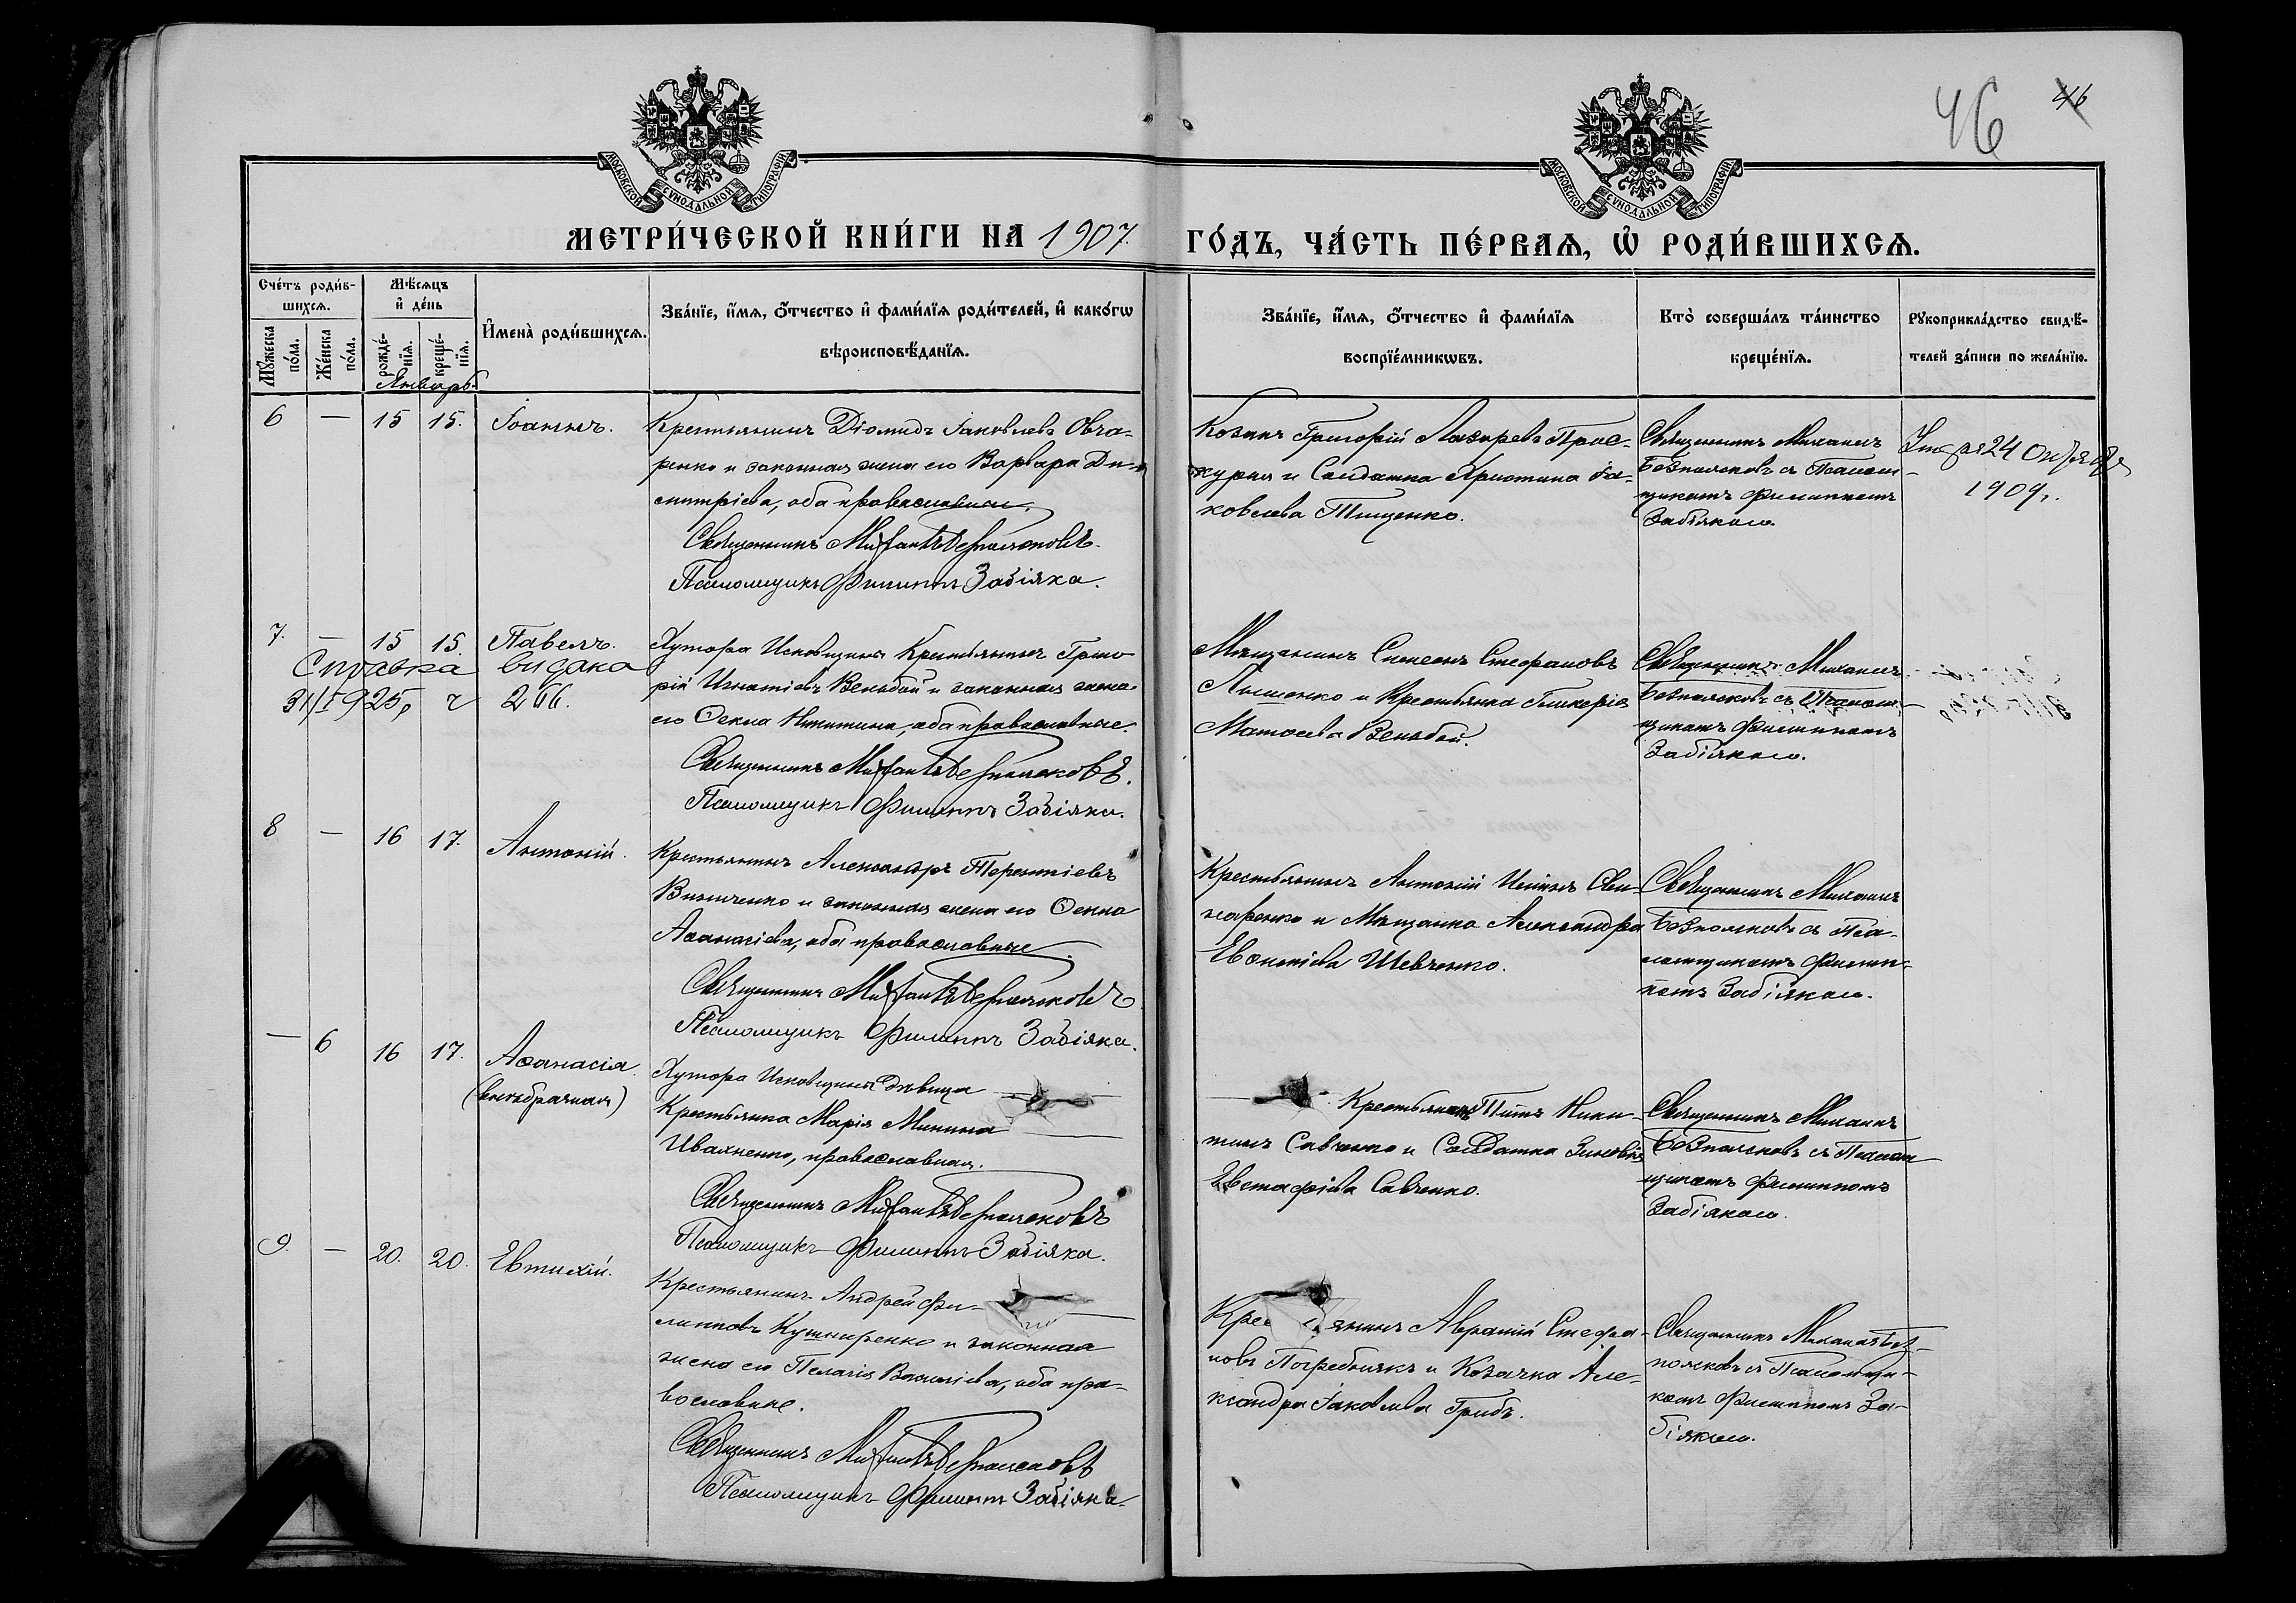 46 46
МОСКОВСКОЙ СѴНОДАЛЬНОЙ ТИПОГРАФІИ
МОСКОВСКОЙ СѴНОДАЛЬНОЙ ТИПОГРАФІИ
МЕТРИ́ЧЕСКОЙ КНИ́ГИ НА 1907.
ГО́ДЪ, ЧА́СТЬ ПЕ́РВАѦ, Ѡ҆ РОДИ́ВШИХСѦ.
Сче́тъ роди́в-
шихсѧ.
Мꙋ́жеска по́ла.
Же́нска по́ла.
Мѣ́сѧцъ
и҆ де́нь
рожде́-нїѧ.
креще́-нїѧ.
Январь
И҆мена̀ роди́вшихсѧ.
Зва́нїе, и҆́мѧ, ѻ҆́тчество и҆ фами́лїѧ роди́телей, и҆ како́гѡ
вѣроисповѣ́данїѧ.
Зва́нїе, и҆́мѧ, ѻ҆́тчество и҆ фами́лїѧ
воспрїе́мникѡвъ.
Кто̀ соверша́лъ та́инство
креще́нїѧ.
Рꙋкоприкла́дство свидѣ́-
телей за́писи по жела́нїю.
6 — 15 15. Іоаннъ.
Крестьянинъ Діомидъ Іаковлевъ Овча-
ренко и законная жена его Варвара Ди-
митріева, оба православные.
Священникъ Михаилъ Безпалсковъ
Псаломщикъ Филиппъ Забіяка.
Козакъ Григорій Лазаревъ Прос-
курня и Солдатка Христина Іа-
ковлева Тищенко.
Священникъ Михаилъ
съ Псалом-
щикомъ Филиппомъ
Забіякою.
24
1909г.
7. — 15 15. Павелъ.
Справка видана
31/I 925 р. ч 266.
Хутора Исковщины Крестьянинъ Григо-
рій Игнатіевъ Вельбой и законная жена
его Ѳекла Никитина, оба православные.
Священникъ Михаилъ
Псаломщикъ Филиппъ Забіяка.
Мѣщанинъ Симеонъ Стефановъ
Ляшенко и Крестьянка Гликерія
Матѳеева Вельбой.
Священникъ Михаилъ
съ Псалом-
щикомъ Филиппомъ
Забіякою.
8 — 16 17. Антоній.
Крестьянинъ Александръ Терентіевъ
Винниченко и законная жена его Ѳекла
Аѳанасіева, оба православные.
Священникъ Михаилъ
Псаломщикъ Филиппъ Забіяка.
Крестьянинъ Антоній Ильинъ Сви-
наренко и Мѣщанка Александра
Евѳиміева Шевченко.
Священникъ Михаилъ
съ Пса-
ломщикомъ Филип-
помъ Забіякою.
— 6 16 17. Аѳанасія.
(внѣбрачная)
Хутора Исковщины дѣвица
Крестьянка Марія Минина
Ивахненко, православная.
Священникъ Михаилъ
Псаломщикъ Филиппъ Забіяка.
Крестьянинъ Титъ Ники-
тинъ Савченко и Солдатка Зиновія
Евстафіева Савченко.
Священникъ Михаилъ
съ Псалом-
щикомъ Филиппомъ
Забіякою.
9. — 20. 20. Евтихій.
Крестьянинъ Андрей Фи-
липповъ Кушниренко и законная
жена его Пелагія Василіева, оба пра-
вославные.
Священникъ Михаилъ
Псаломщикъ Филиппъ Забіяка.
Крестьянинъ Авраамій Стефа-
новъ Погребнякъ и Козачка Але-
ксандра Іаковлева Грибъ.
Священникъ Михаилъ
съ Псаломщи-
комъ Филиппомъ За-
біякою.